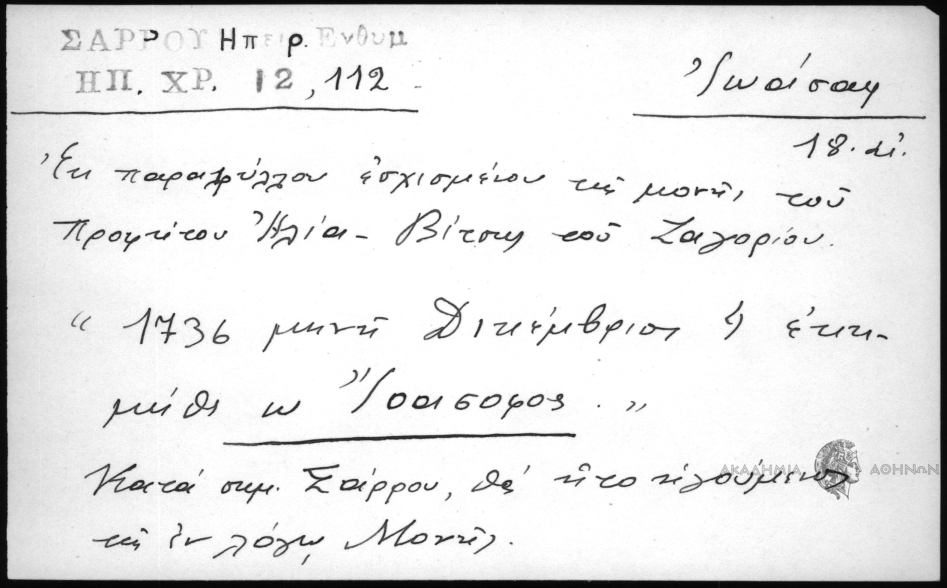 ΣΑΡΡΟΥ Ηπειρ. Ενθυμ
ΗΠ. ΧΡ. 12, 112
Ἰωάσαφ
18. αἰ.
Ἐκ παραφύλλου ἐσχισμένου τῆς μονῆς τοῦ
Προφήτου Ἠλία - Βίτσης τοῦ Ζαγορίου.
“ 1736 μηνῆ Δικέμβριος 4 ἐκη-
μήθι ω Ἰοασοφος . ”
Κατά σημ. Σάρρου, θά ἦτο ἡγούμενος
τῆς ἐν λόγῳ Μονῆς.
ΑΚΑΔΗΜΙΑ ΑΘΗΝΩΝ